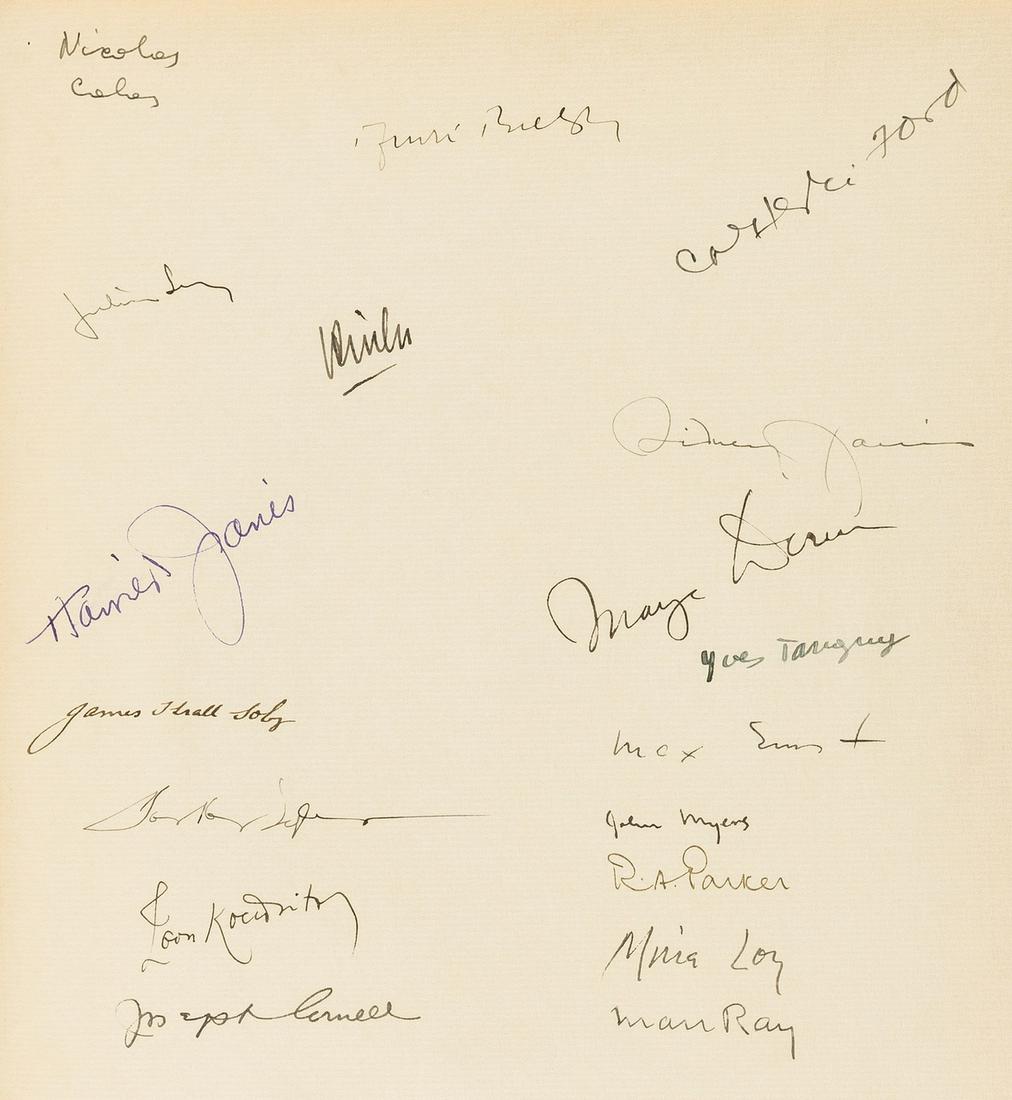 Nicolas
Calas
Charles Henri Ford
Julien Levy
Sidney Janis
Harriet Janis
Maya Deren
Yves Tanguy
James Thrall Soby
Max Ernst
John Myers
R.A. Parker
Leon Kochnitzky
Mina Loy
Joseph Cornell
Man Ray